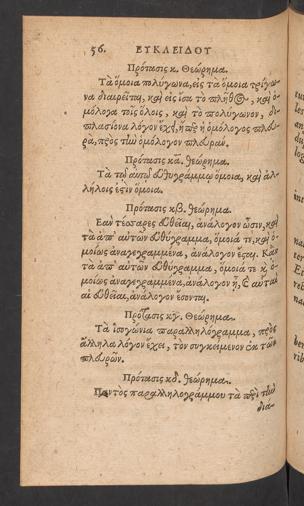 56. ΕΥΚΛΕΙΔΟΥ
Πρότασις κ. Θεώρημα.
Τὰ ὅμοια πολύγωνα, εἰς τὰ ὅμοια τρίγω-
να διαιρεῖται, καὶ εἰς ἴσα τὸ πλῆθος, καὶ ὁ-
μόλογα τοῖς ὅλοις, καὶ τὸ πολύγωνον, δι-
πλασίονα λόγον ἔχει, ἤπερ ἡ ὁμόλογος πλευ-
ρὰ, πρὸς τὴν ὁμόλογον πλευράν.
Πρότασις κα. θεώρημα.
Τὰ τῷ αὐτῷ εὐθυγράμμῳ ὅμοια, καὶ ἀλ-
λήλοις ἐστὶν ὅμοια.
Πρότασις κβ. θεώρημα.
Ἐὰν τέσσαρες εὐθεῖαι, ἀνάλογον ὦσιν, καὶ
τὰ ἀπ' αὐτῶν εὐθύγραμμα, ὅμοιά τε, καὶ ὁ-
μοίως ἀναγεγραμμένα, ἀνάλογον ἔσται. Κἂν
τὰ ἀπ' αὐτῶν εὐθύγραμμα, ὅμοιά τε καὶ ὁ-
μοίως ἀναγεγραμμένα, ἀνάλογον ᾖ, καὶ αὐταὶ
αἱ εὐθεῖαι, ἀνάλογον ἔσονται.
Πρότασις κγ. Θεώρημα.
Τὰ ἰσογώνια παραλληλόγραμμα, πρὸς
ἄλληλα λόγον ἔχει, τὸν συγκείμενον ἐκ τῶν
πλευρῶν.
Πρότασις κδ. θεώρημα.
Παντὸς παραλληλογράμμου τὰ περὶ τὴν
δια-